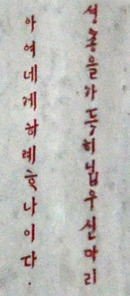 셩총을가득히닙우신마리
아여네게하례ᄒᆞ나이다.